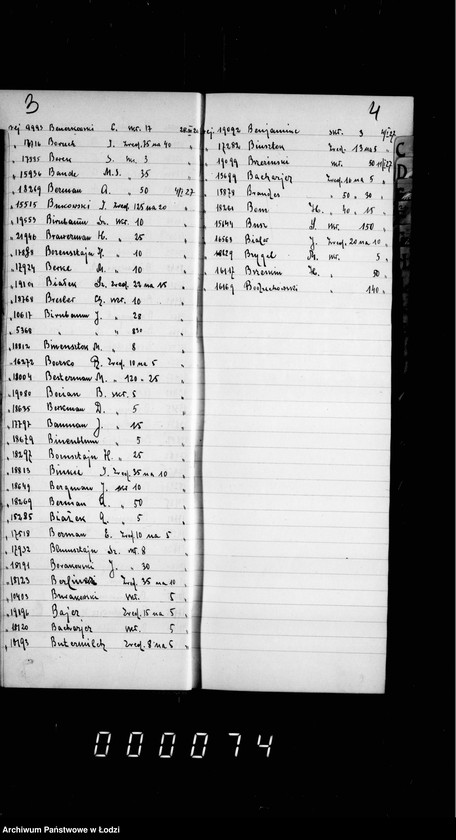 3
rej 9993 C. nr. 17
" 17716 Boruch I. zred. 75 na 40
" 17335 Berek S. nr. 3
" 15936 Bande M.I. " 35
" 18269 Berman A. " 50 4/I 27
" 15515 I. zred. 125 na 20
" 19653 Birnbaum Sz. nr. 10
" 21946 Brawerman H. " 25
" 17288 Borensztajn H. " 10
" 17924 Berke M. " 10
" 19101 Białek Sz. zred. 22 na 15
" 18768 Bresler Ch. nr. 10
" 10617 Birnbaum J. " 28
" 5368 " " 830
" 18812 Birensztok M. " 8
" 16272 R. zred. 10 na 5
" 18004 Besterman M. " 120 " 25
" 19080 Borian B. nr. 5
" 18635 Berkman D. " 5
" 17797 Bauman J. " 15
" 18679 Birenblum " 5
" 18297 Bornsztajn H. " 25
" 18813 I. zred. 35 na 10
" 18649 Bergman J. nr 10
" 18269 Berman A. " 50
" 15285 Białek Ch. " 5
" 17518 Berman E. zred. 10 na 5
" 17932 Blumsztajn Sz. nr. 8
" 18191 Borakowski J. " 30
" 18723 Berliński zred. 35 na 10
" 10403 nr. 5
" 19196 Bajer zred. 15 na 5
" 18720 Bacharjer nr. 5
" 18793 Butermilch zred. 8 na 5
4
rej. 19092 Benjamine nr. 3 4/I 27
" 17282 Biuston zred. 13 na 8
" 19099 Brzeziński nr. 50
" 13699 Bacharjer zred. 16 na 5
" 18878 Brandes " 50 " 30
" 18201 Bom H. " 40 " 15
" 15644 nr. 150
" 16563 J. zred. 20 na 10
" Brygel M. nr. 5
" 16117 Brzezin H. " 50
" 16169 Bodzechowski " 140
C
D
000074
Archiwum Państwowe w Łodzi